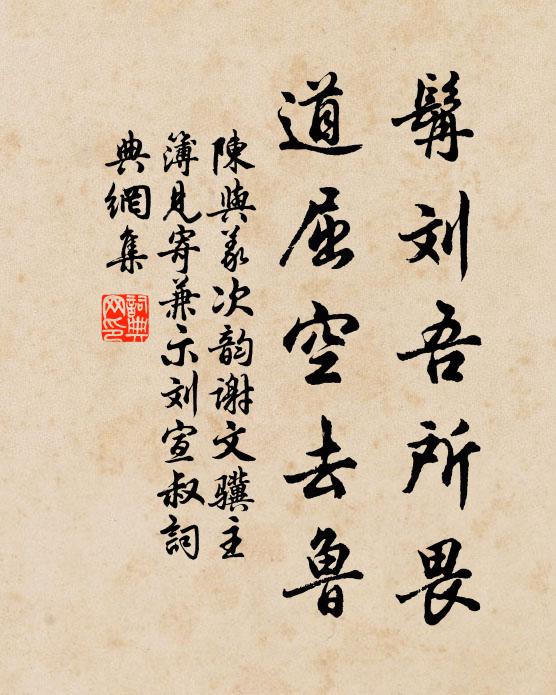 髯刘吾所畏
道屈空去鲁
陳與義次韵谢文驥主
簿見寄兼示刘宣叔詞
典網集
詞典
网印